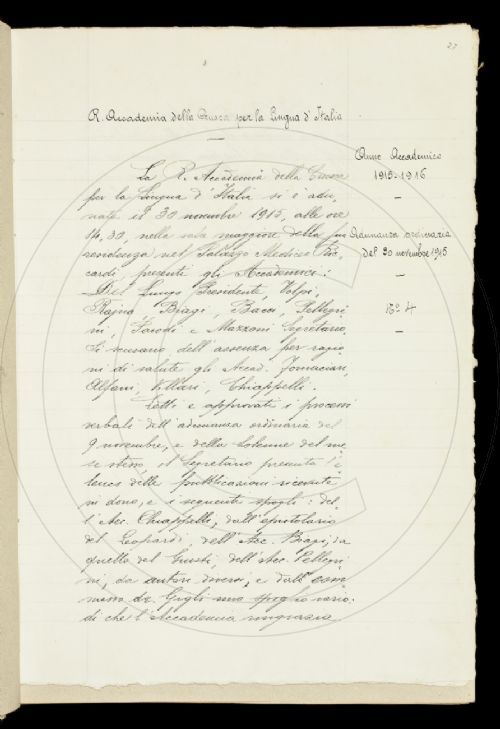 27
R. Accademia della Crusca per la Lingua d'Italia
Anno Accademico
1915-1916
Adunanza ordinaria
del 30 novembre 1915
N.º 4
La R. Accademia della Crusca
per la Lingua d'Italia si è adu
nata il 30 novembre 1915, alle ore
14,30, nella sala maggiore della sua
residenza nel Palazzo Mediceo Ric
cardi, presenti gli Accademici:
Del Lungo Presidente, Volpi,
Rajna, Biagi, Bacci, Pellegri
ni, Parodi e Mazzoni Segretario.
Si scusano dell'assenza per ragio
ni di salute gli Accad. Fornaciari,
Alfani, Villari, Chiappelli.
Letti e approvati i processi
verbali dell'adunanza ordinaria del
9 novembre, e della solenne del me
se stesso, il Segretario presenta l'e
lenco delle pubblicazioni ricevute
in dono, e i seguenti spogli: del
l'Acc. Chiappelli, dall'epistolario
del Leopardi, dell'Acc. Biagi, da
quello del Giusti, dell'Acc. Pellegri
ni, da autori diversi, e dall'
dr. Gigli uno spoglio vario.
di che l'Accademia ringrazia